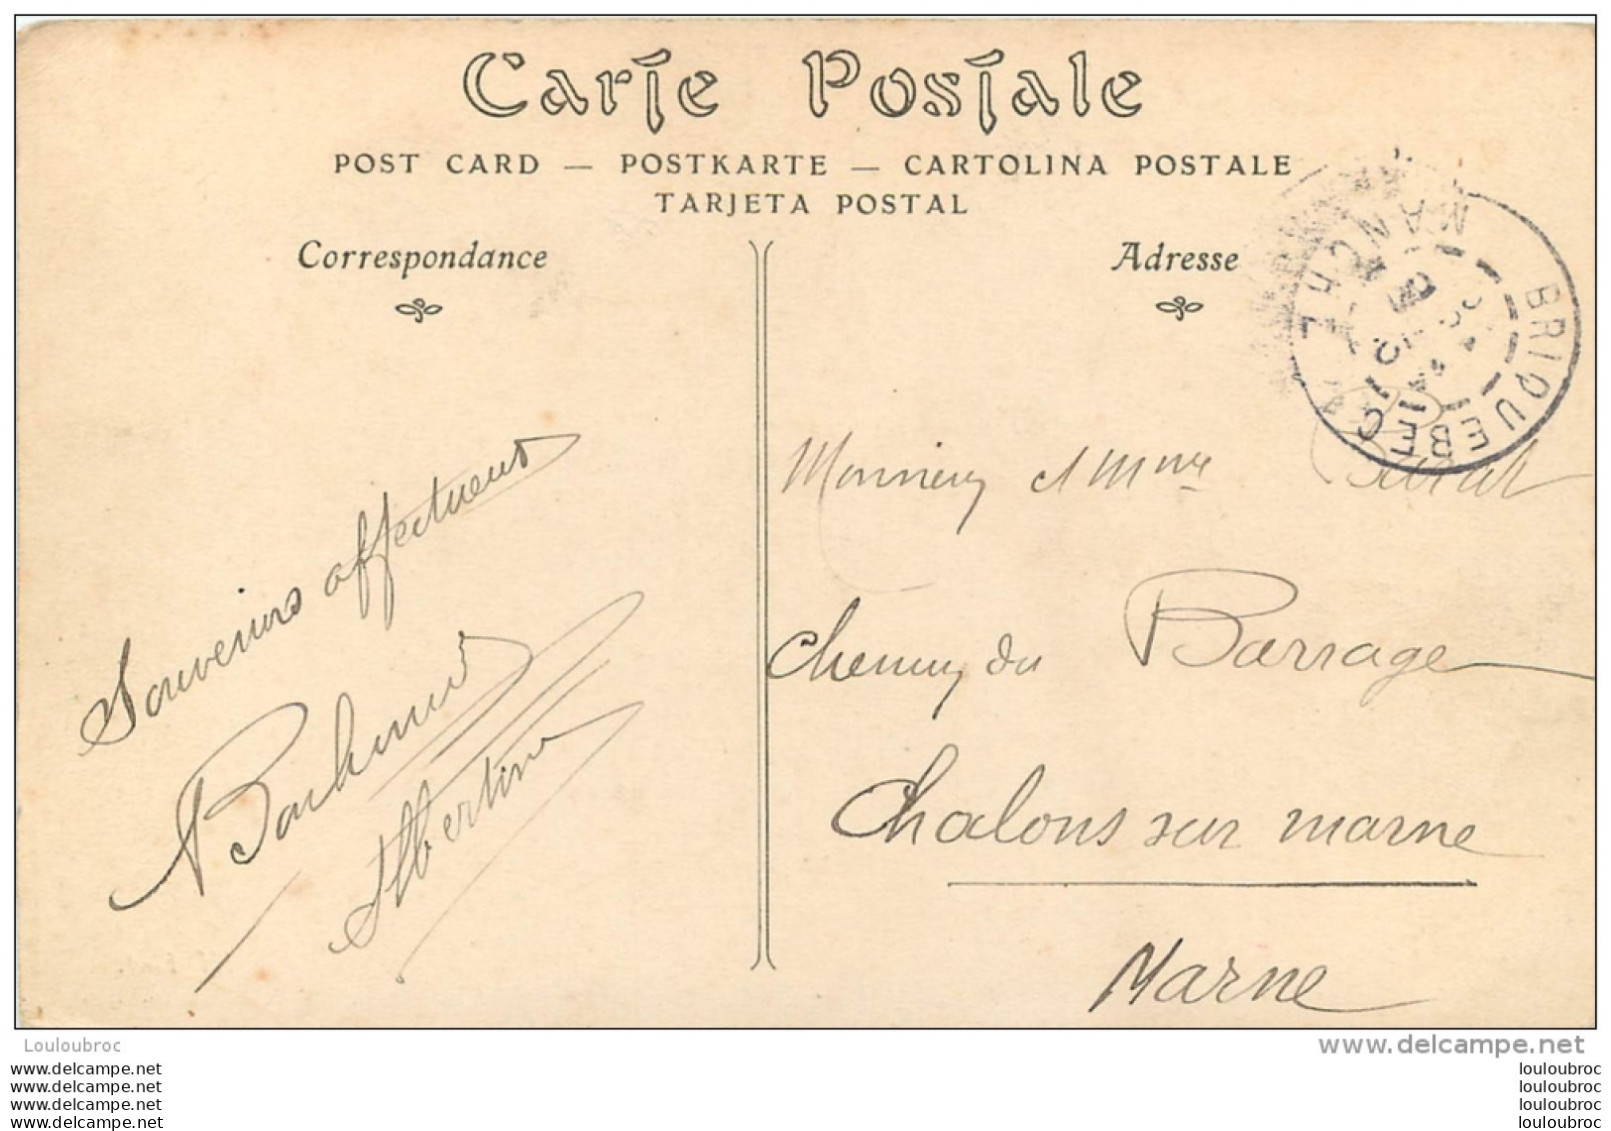 Carte Postale
POST CARD — POSTKARTE — CARTOLINA POSTALE
TARJETA POSTAL
Correspondance
Adresse
BRIQUEBEC
MANCHE
Souvenirs affectueux
Albertine
Monsieur et Mme
Chemin du Barrage
Chalons sur marne
Marne
Louloubroc
www.delcampe.net
www.delcampe.net
www.delcampe.net
www.delcampe.net
www.delcampe.net
louloubroc
louloubroc
louloubroc
louloubroc